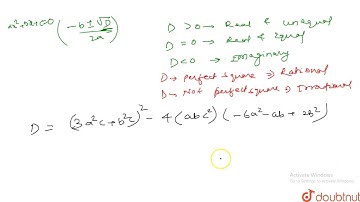 ax²+bx+c=0 (-b±√D / 2a)
D >0 → Real & unequal
D =0 → Real & Equal
D<0 → Imaginary
D → perfect square ⇒ Rational
D → Not perfect square ⇒ Irrational
D = (3a²c+b²c)² - 4(abc²)(-6a²-ab+2b²)
Activate Windows
doubtnut